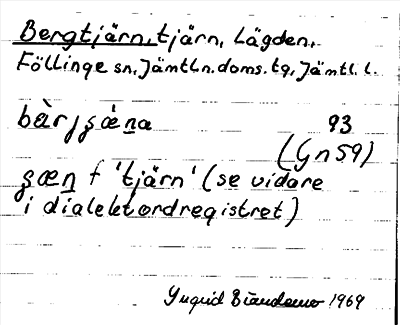 Bergtjärn, tjärn, Lägden,
Föllinge sn, Jämtl.n.doms.tg, Jämtl. l.
93
(Gn 59)
f 'tjärn' (se vidare
i dialektordregistret)
Yngrid 1969